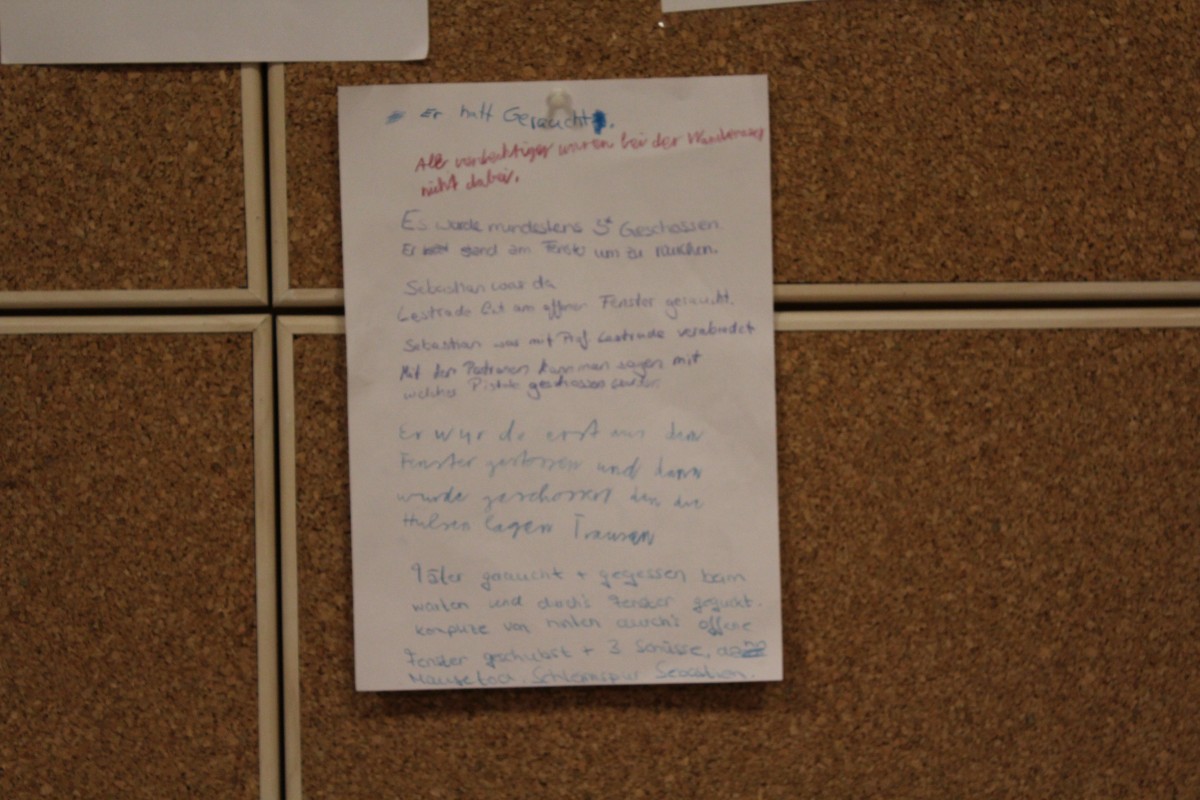 Er hatt Geraucht.
Alle verdechtiger waren bei der Wanderung
nicht dabei.
Es wurde mindestens 3* Geschossen
Er stand am Fenster um zu rauchen.
Sebastian war da
Lestrade hat am offner Fenster geraucht.
Sebastian war mit Prof Lestrade verabredet
Mit den Patronen kann man sagen mit
welcher Pistole geschossen wurde
Er wurde erst aus dem
Fenster gestossen und dann
wurde geschossen den die
Hülsen lagen Trausen
geraucht + gegessen beim
warten und durch's Fenster geguckt.
von hinten durch's offene
Fenster geschubst + 3 Schüsse,
Mauseloch. Schleimspur Sebastian.